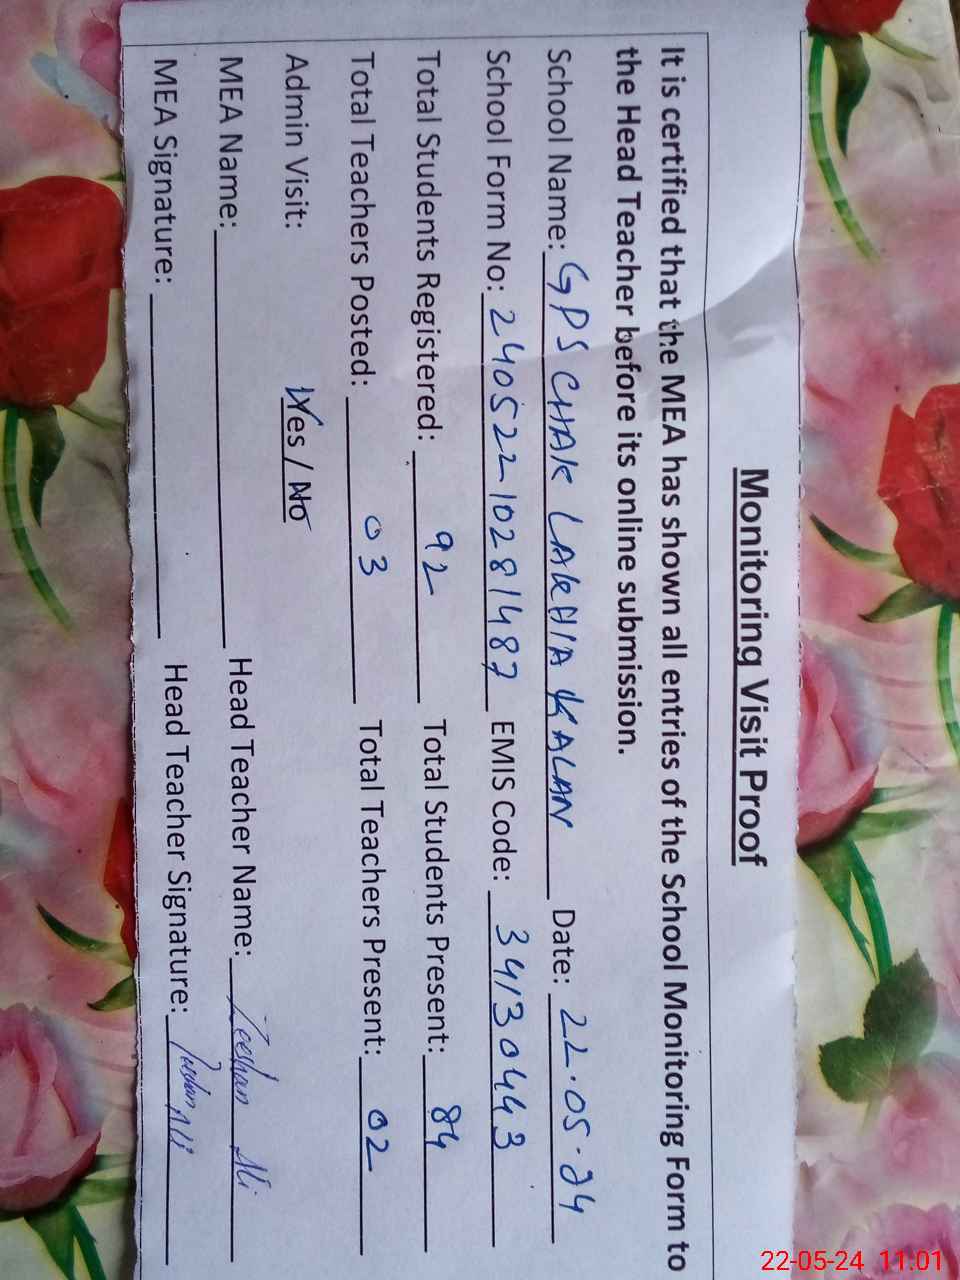 Monitoring Visit Proof
It is certified that the MEA has shown all entries of the School Monitoring Form to
the Head Teacher before its online submission.
School Name: GPS CHAK LAKHIA KALAN Date: 22.05.24
School Form No: 24052210281487 EMIS Code: 34130443
Total Students Registered: 92 Total Students Present: 84
Total Teachers Posted: 03 Total Teachers Present: 02
Admin Visit: Yes / No
MEA Name: Head Teacher Name: Zeeshan Ali
MEA Signature: Head Teacher Signature: Zeeshan Ali
22-05-24 11:01